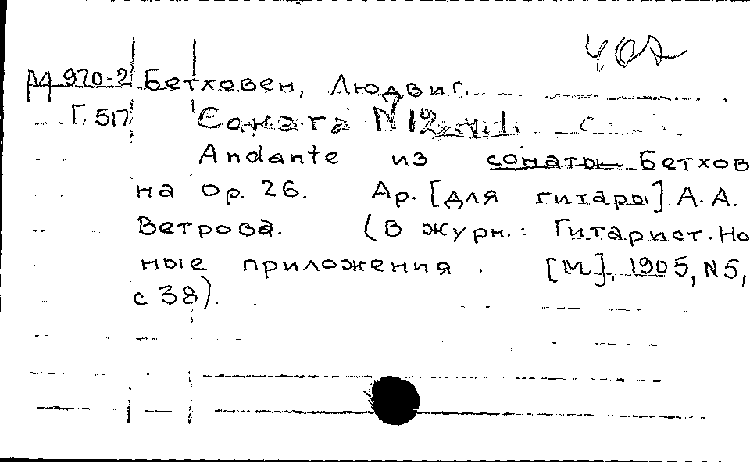 407
М 970-2 Бетховен, Людвиг.
Г. 517 Соната N 12
Andante из сонаты Бетхов
на op. 26. Ар. [для гитары] А. А.
Ветрова. (В журн.: Гитарист. Но
ные приложения. [М], 1905, N 5,
с 38).